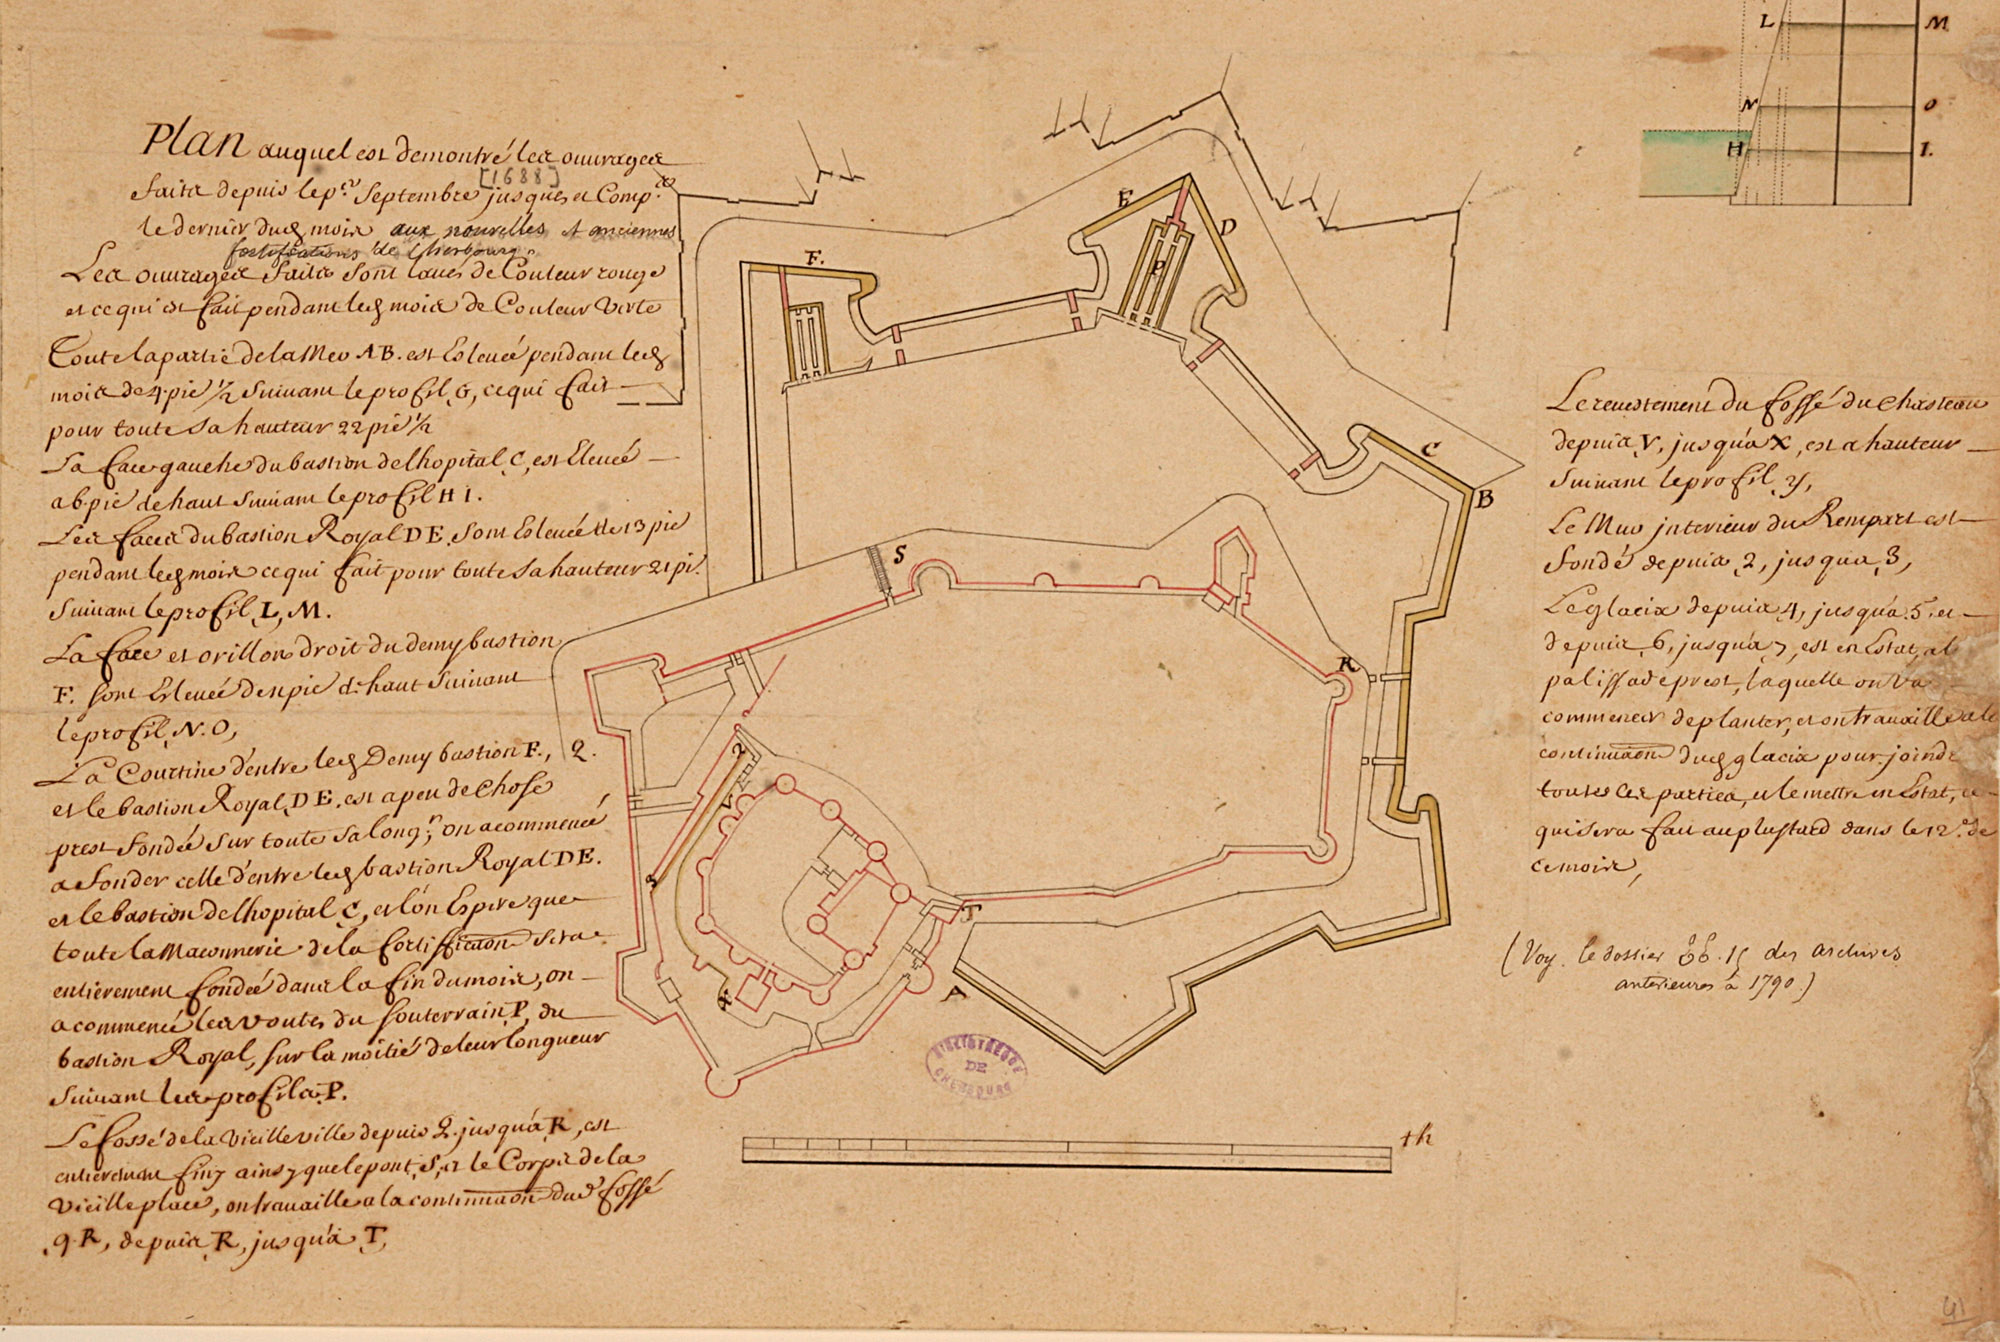 Plan auquel est demontré les ouvrages
faits depuis le p.er Septembre jusques et Comp.
[1688]
le dernier dud. mois aux nouvelles et anciennes
fortifications de Cherbourg.
Les ouvrages faits sont lavés de Couleur rouge
et ce qui est fait pendant led. mois de Couleur verte
Toute la partie de la Mer AB. est Eslevée pendant led.
mois de 4. pié 1/2 Suivant le profil, G, ce qui fait
pour toute sa hauteur 22 pié 1/2
La face gauche du bastion de lhopital, C, est Elevée
a 6. pié de haut suivant le profil H I.
Les faces du bastion Royal D E. sont Eslevée de 13 pié
pendant led. mois ce qui fait pour toute sa hauteur 21 pi.
Suivant le profil, L, M.
La face et orillon droit du demy bastion
F. sont Eslevée de pié de haut Suivant
le profil, N. O,
La Courtine d'entre led. Demy bastion F.,
et le bastion Royal, D E. est a peu de Chose
prest fondée sur toute sa long.r, on a commencé
a fonder celle d'entre led. bastion Royal D E.
et le bastion de lhopital, C, et l'on Espere que
toute la Maconnerie de la fortification sera
entierement fondée dans la fin du mois, on
a commencé les voutes du souterrain, P, du
bastion Royal, sur la moitié de leur longueur
Suivant les profils, P.
Le fossé de la vieille ville depuis Q. jusqu'a R, est
entierement finy ainsy que le pont, S, et le Corps de la
vieille place, on travaille a la continuaon dud. fossé
q. R, depuis R, jusqu'a T,
Le revestement du fossé du Chasteau
depuis, V, jusqu'a X, est a hauteur
suivant le profil, y,
Le Mur interieur du Rempart est
fondé depuis, 2, jusqu'a, 3,
Le glacis depuis 4, jusqu'a 5. et
depuis, 6, jusqu'a 7, est en Estat, et
palissade prest, laquelle on va
commencer de planter, et on travaille a la
continuaon dud. glacis pour joindre
toutes ces parties, et le mettre en Estat, ce
qui sera fait au plus tard dans le 12.e de
ce mois,
(Voy. le dossier EE. 15 des archives
antérieures à 1790.)
L
M
N
O
H
I.
E
D
F.
P
C
B
S
R
Q.
2
V
3
X
T
A
BIBLIOTHEQUE
DE
CHERBOURG
th
41